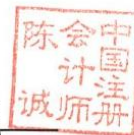 中国注册
会计师
陈诚